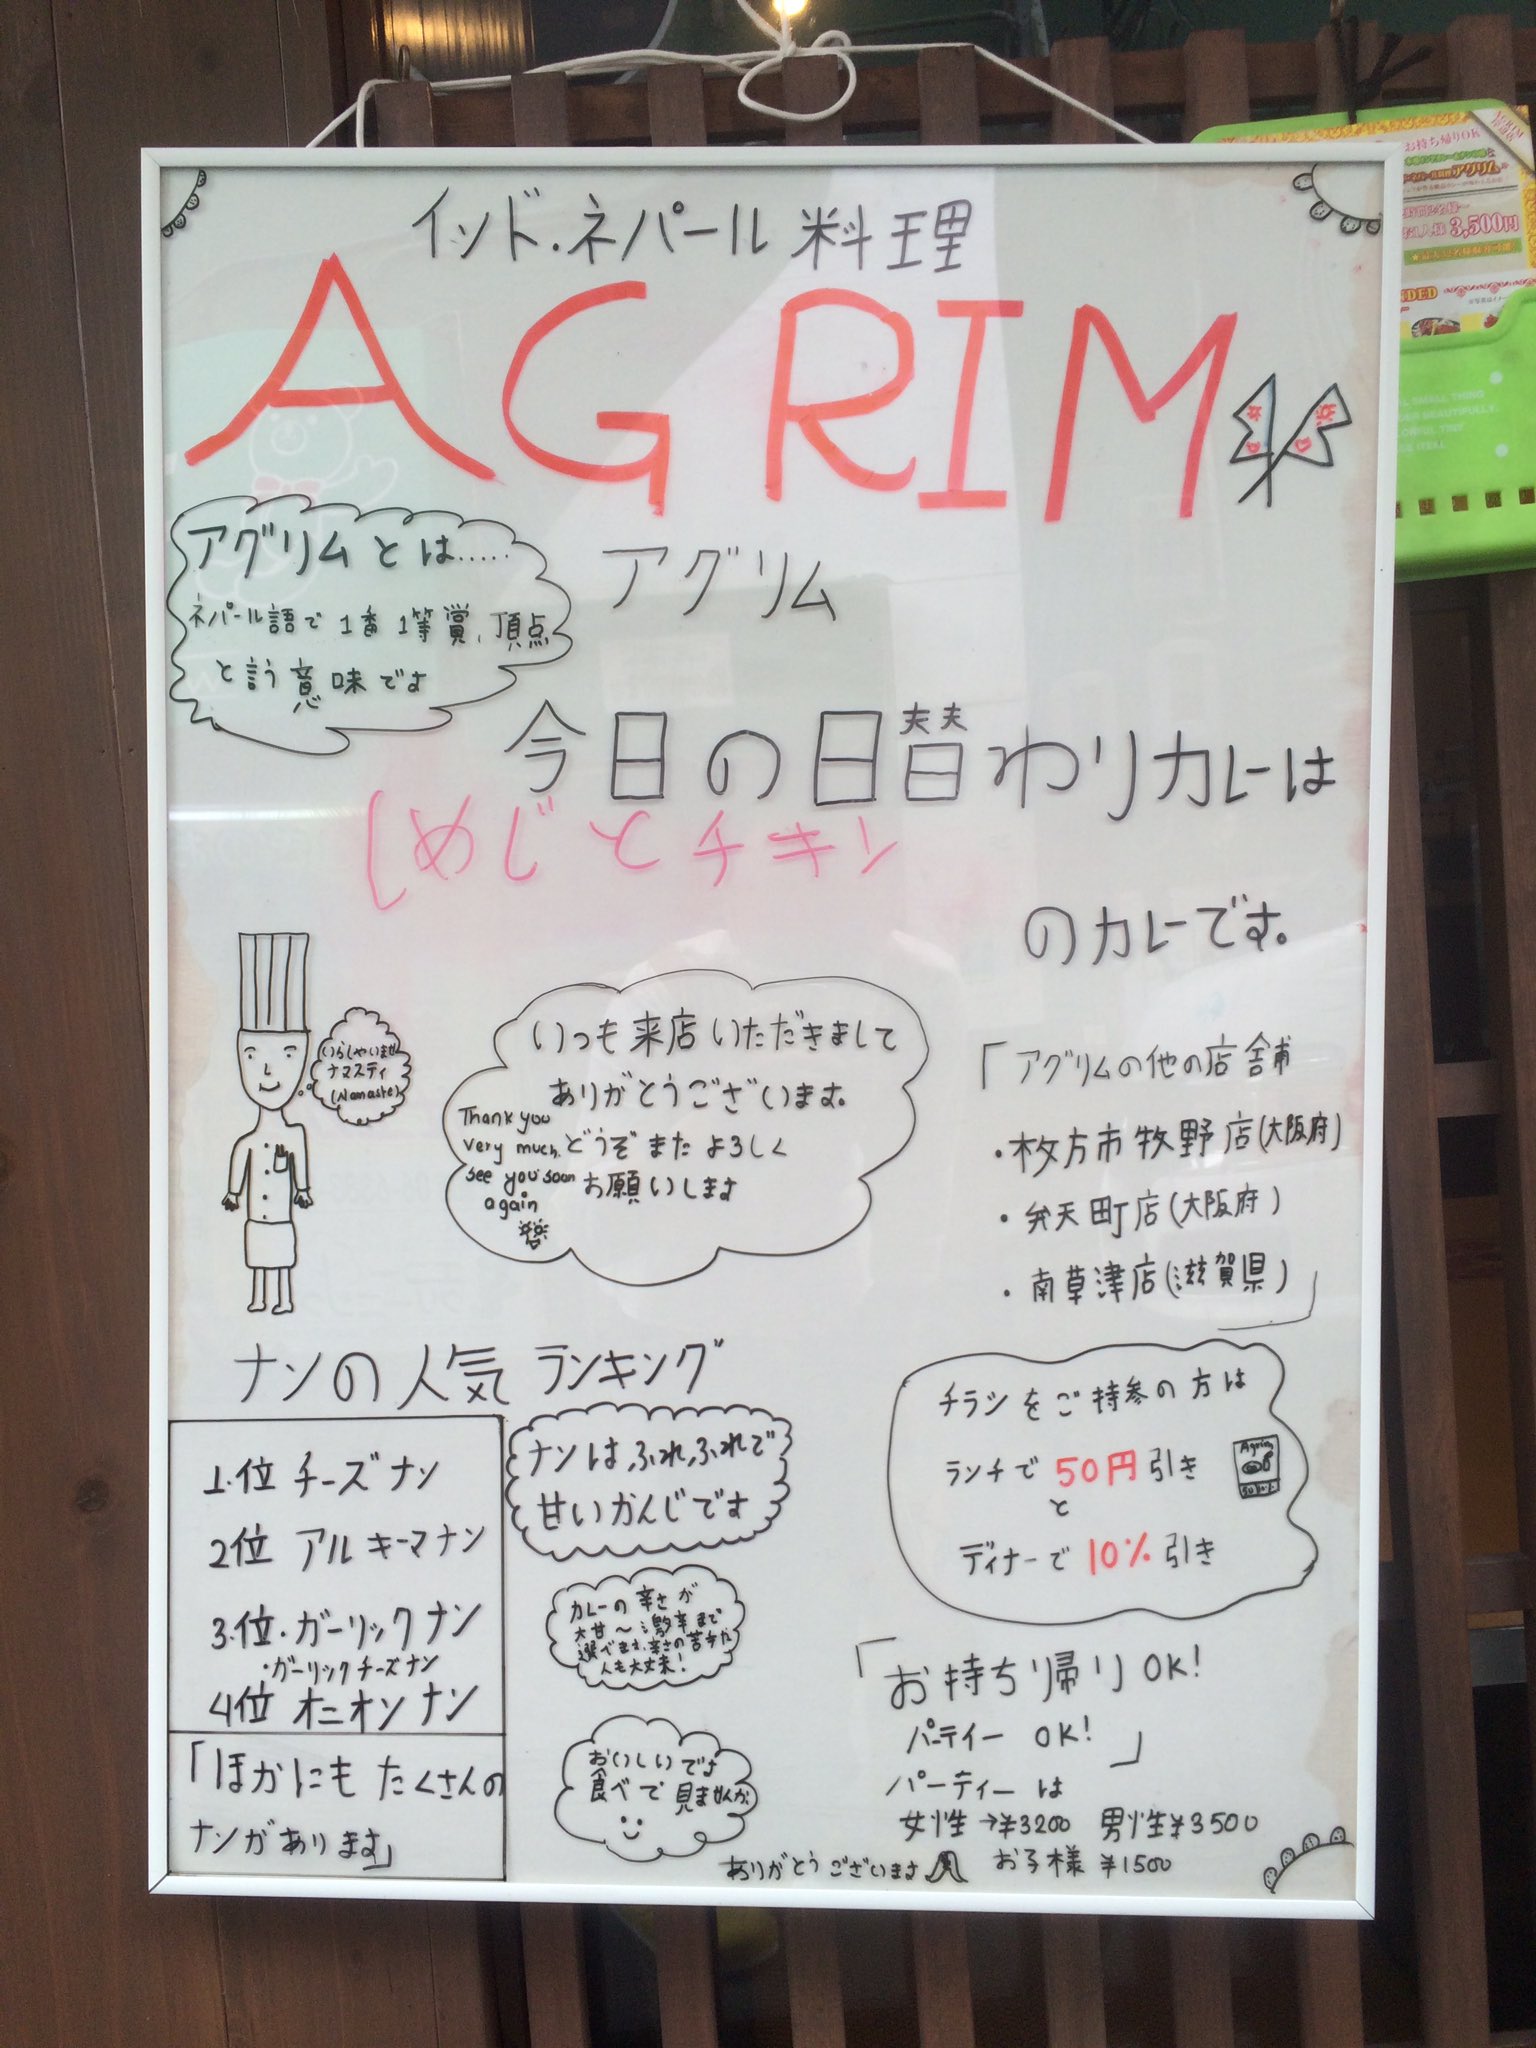 インド・ネパール料理
AGRIM
アグリム
アグリムとは.....
ネパール語で1番1等賞、頂点
と言う意味です
今日の日替わりカレーは
しめじとチキン
のカレーです。
いらしゃいませ
ナマスティ
(Namaste)
いつも来店いただきまして
ありがとうございます。
Thank you
very much. どうぞまたよろしく
see you soon お願いします
again
「アグリムの他の店舗
・枚方市牧野店(大阪府)
・弁天町店(大阪府)
・南草津店(滋賀県)」
ナンの人気ランキング
1.位 チーズナン
2位 アルキーマナン
3.位・ガーリックナン
・ガーリックチーズナン
4位 オニオンナン
「ほかにもたくさんの
ナンがあります」
ナンはふれふれで
甘いかんじです
カレーの辛さが
大甘〜激辛まで
選べます.辛さの苦手な
人も大丈夫!
おいしいです
食べて見ませんか
チラシをご持参の方は
ランチで50円引き
と
ディナーで10%引き
Agrim
「お持ち帰りOK!
パーティー OK!」
パーティーは
女性→¥3200 男性¥3500
お子様 ¥1500
ありがとうございます
お持ち帰りOK
アグリム
3,500円